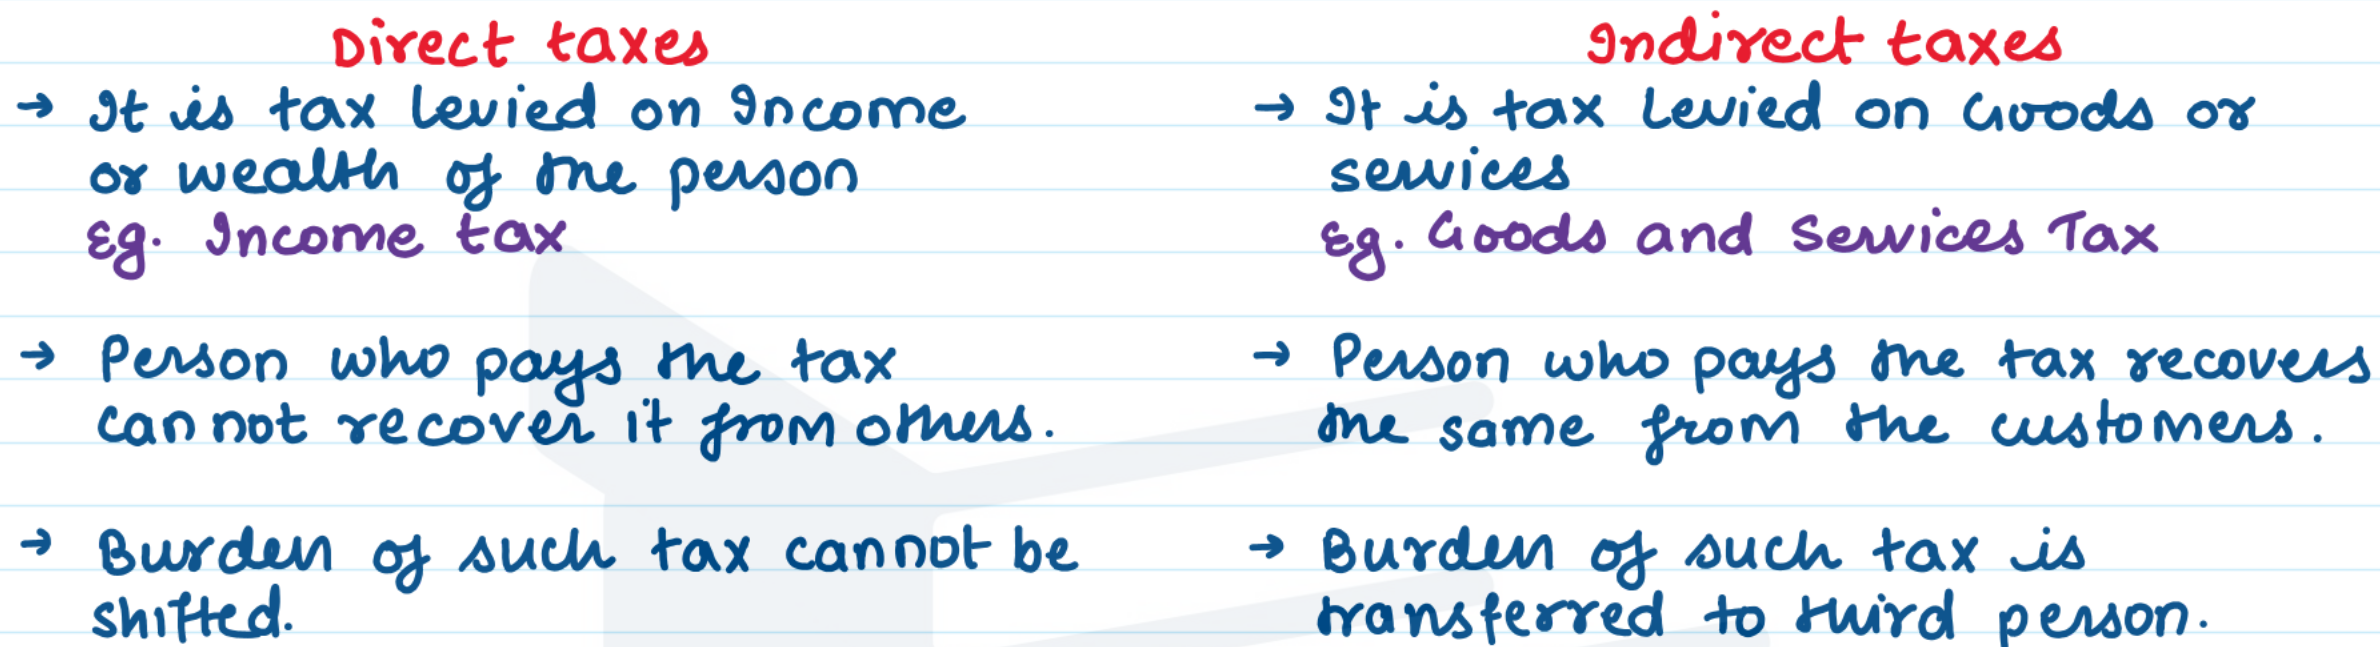 Direct taxes
→ It is tax levied on Income
or wealth of the person
Eg. Income tax
→ Person who pays the tax
cannot recover it from others.
→ Burden of such tax cannot be
shifted.
Indirect taxes
→ It is tax levied on Goods or
services
Eg. Goods and Services Tax
→ Person who pays the tax recovers
the same from the customers.
→ Burden of such tax is
transferred to third person.